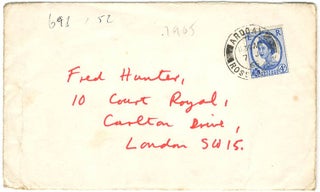 691 . 52
1965
Fred Hunter,
10 Court Royal,
Carlton Drive,
London SW15.